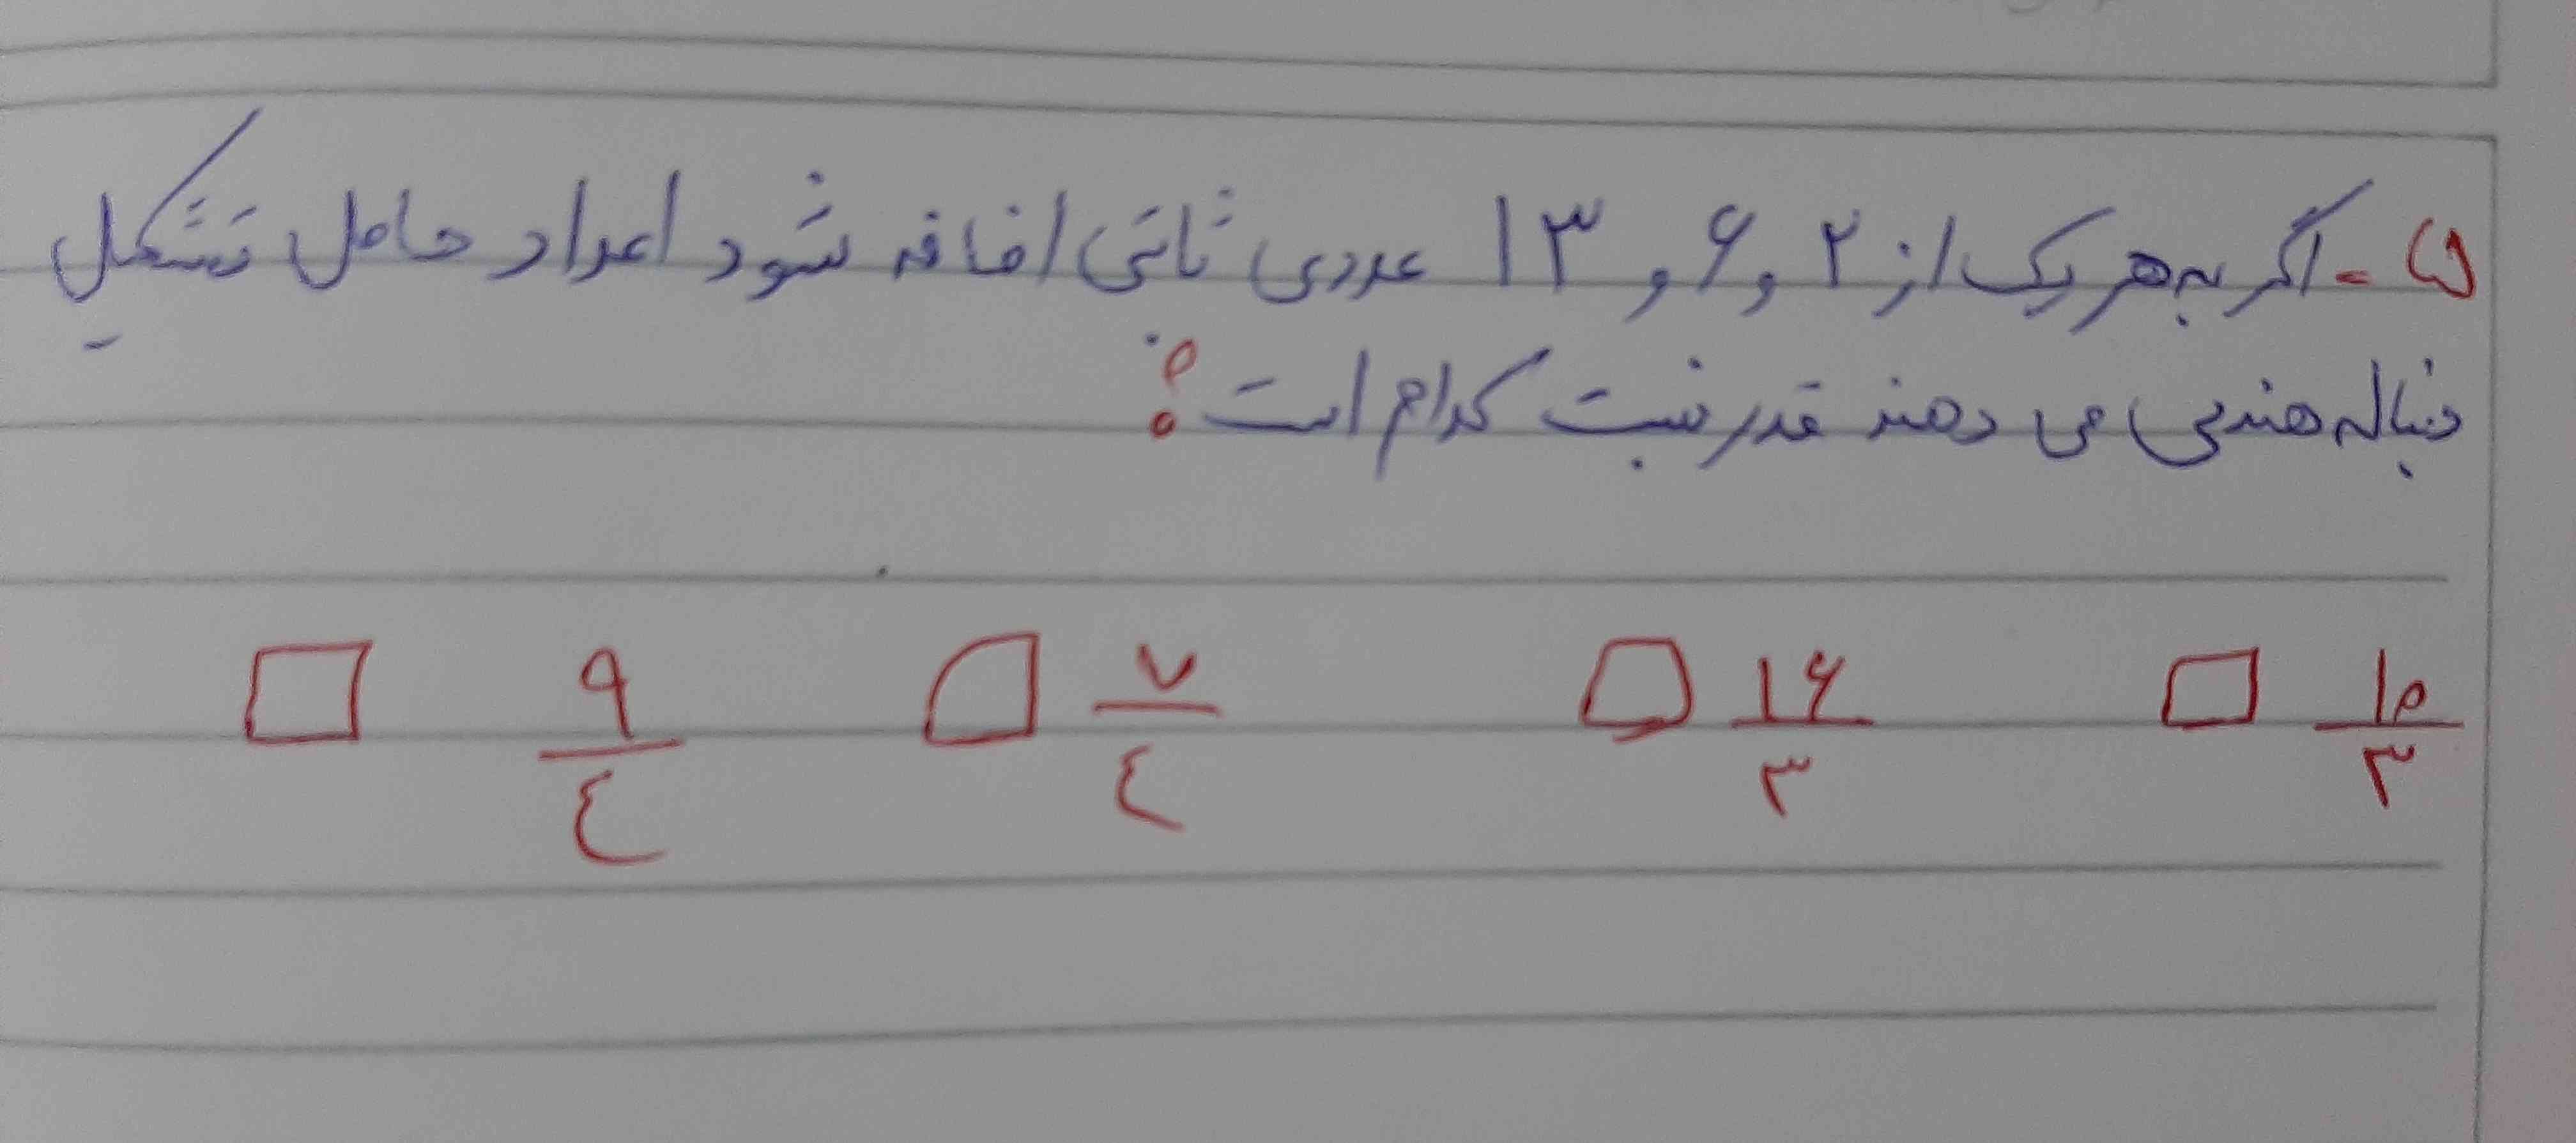 ۵- اگر به هر یک از ۲ و ۶ و ۱۳ عددی ثابتی اضافه شود اعداد حاصل تشکیل
دنباله هندسی می دهند قدر نسبت کدام است؟
۱۰/۳ □ ۱۶/۳ □ ۷/۴ □ ۹/۴ □